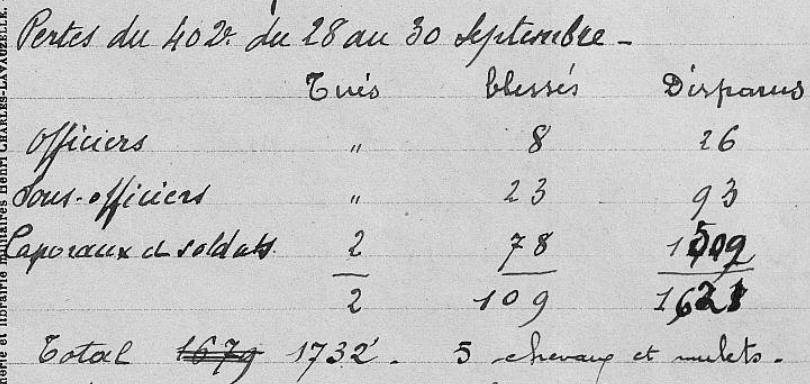 Pertes du 402e du 28 au 30 Septembre -
Tués blessés Disparus
Officiers " 8 26
Sous-officiers " 23 93
Caporaux et soldats 2 78 1502
2 109 1621
Total 1679 1732 . 5 chevaux et mulets .
librairie militaires Henri CHARLES-LAVAUZELLE.